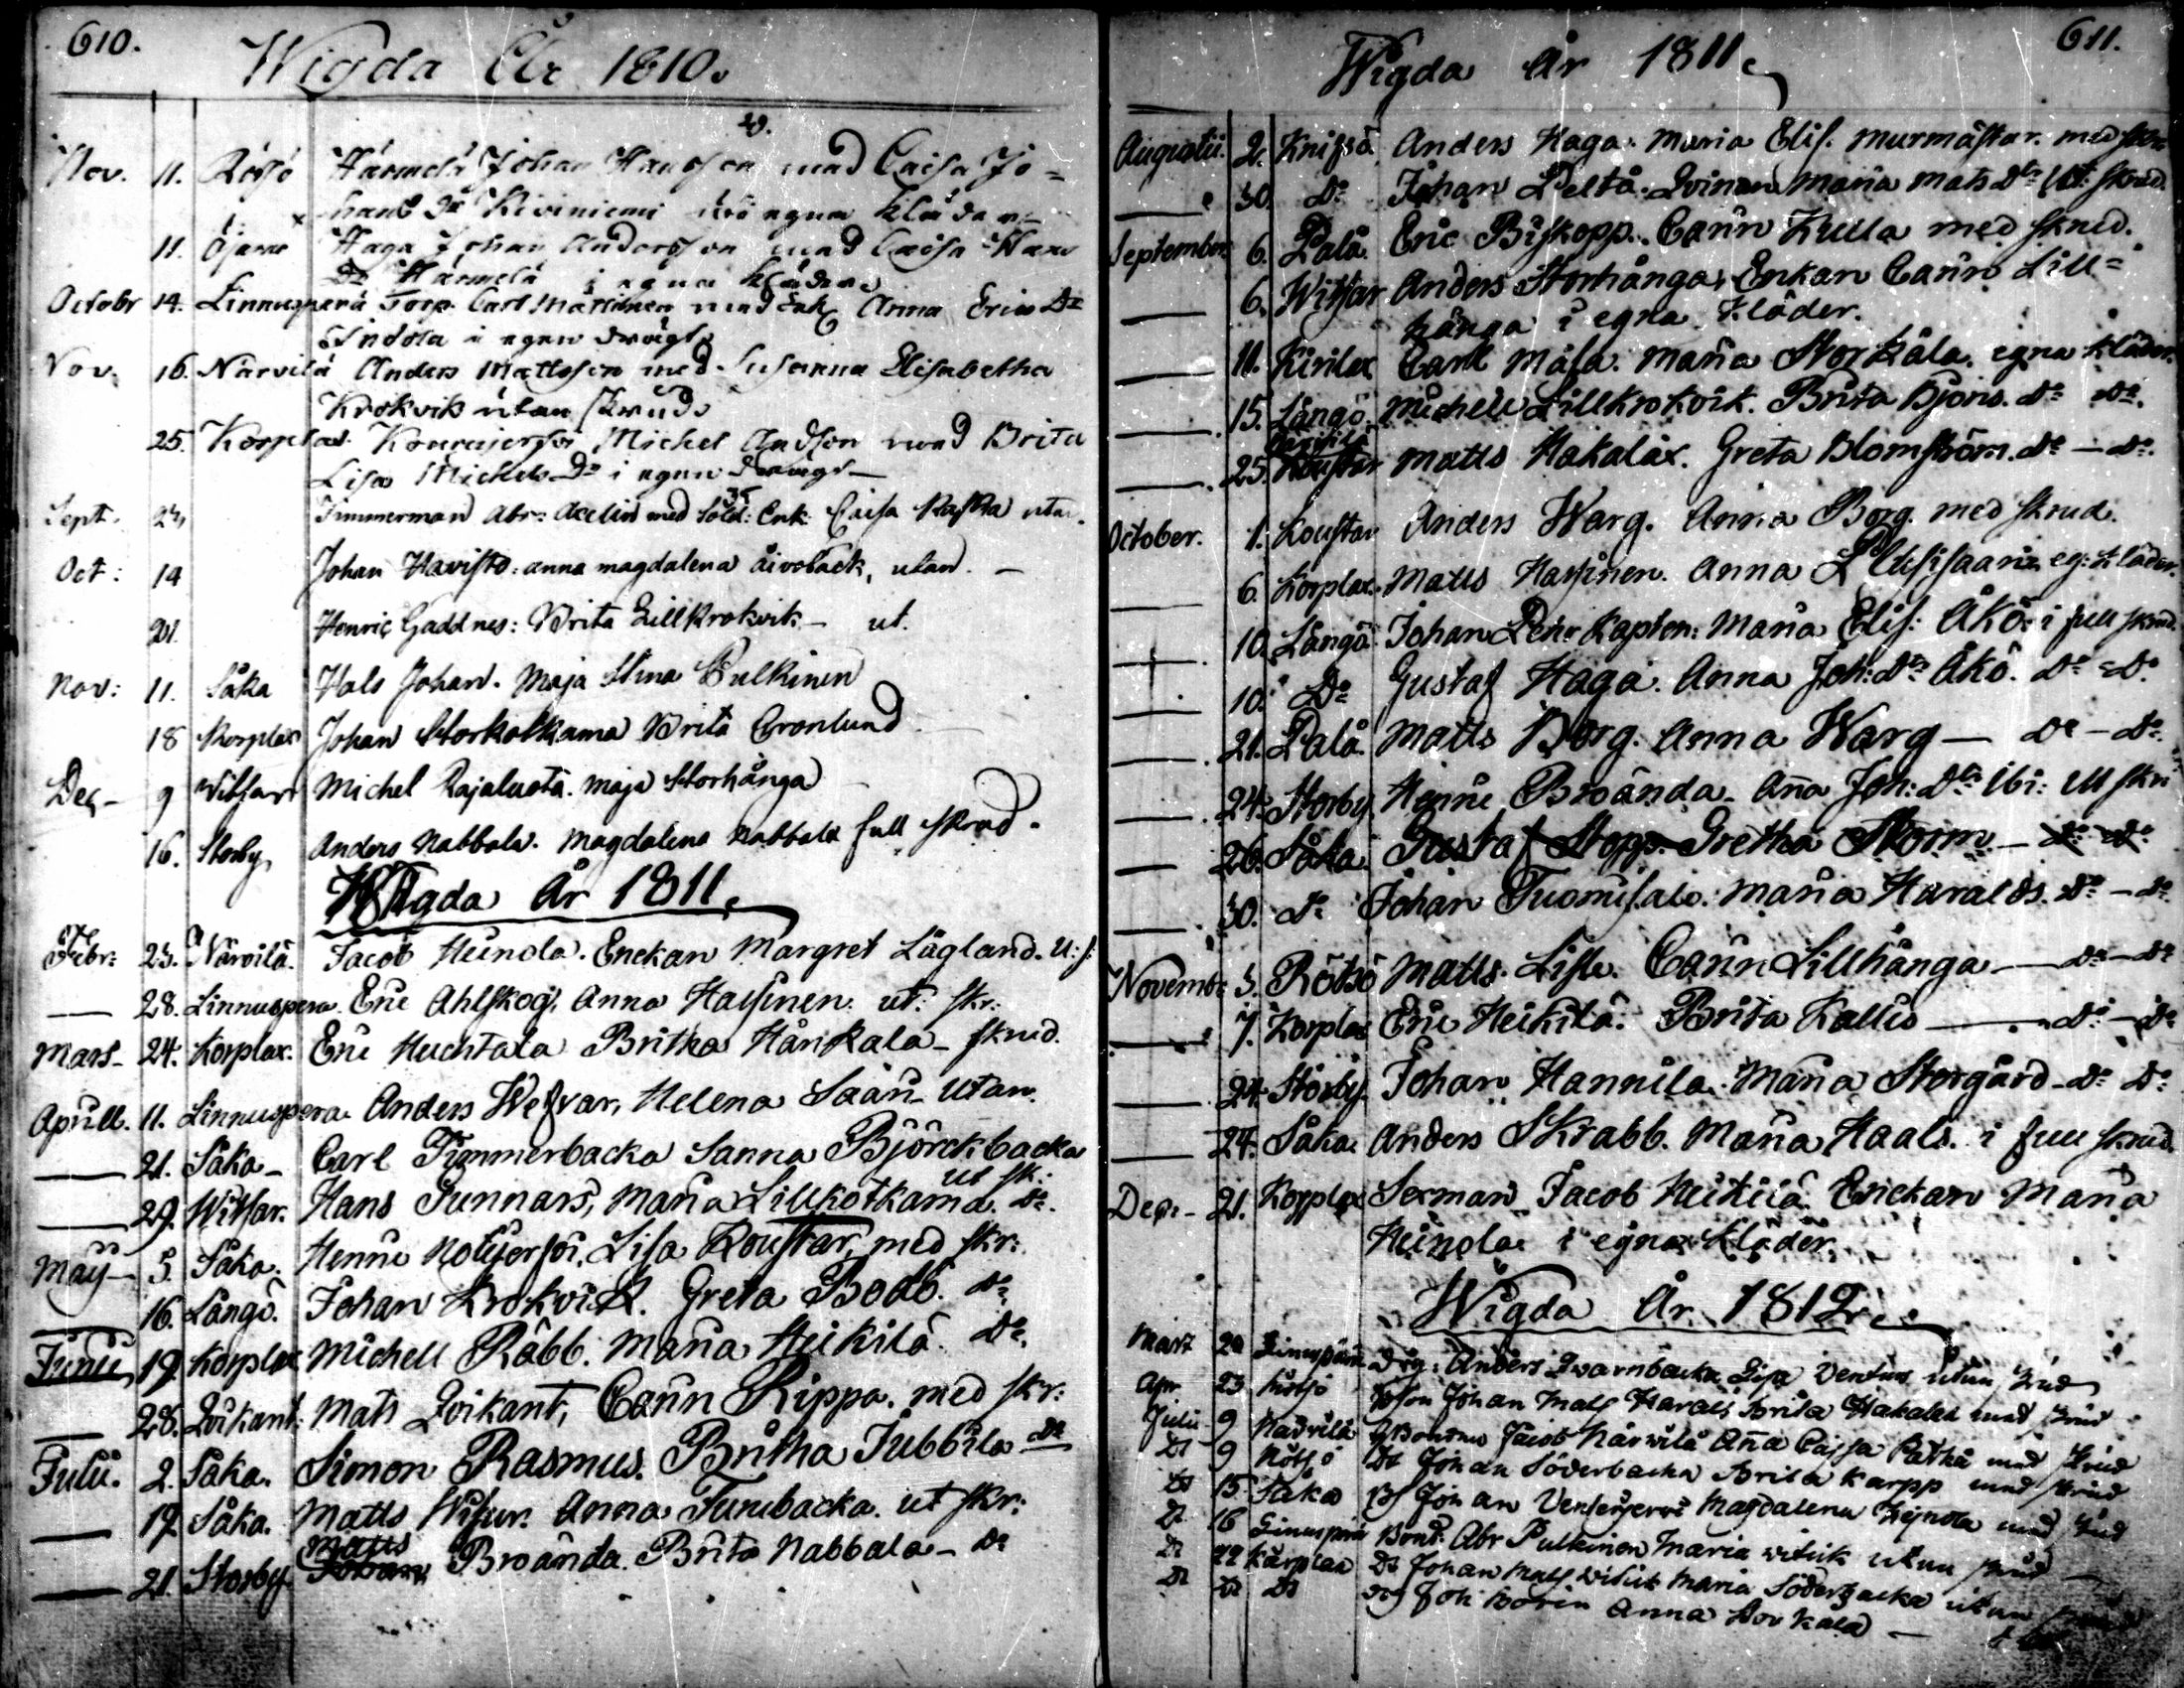 610.
Wigda År 1810.
Nov. 11. Rötsö Härmelä Johan Hansson med Caisa Jo=
hans Dr Kiviniemi i egna kläder
11. Öjane Haga Johan Andersson med Caisa Hans
Dr Härmelä i egna kläder
Octobr 14. Linnuspera Torp. Carl Mattsson med Enk Anna Erics Dr
Indola i egen drägt
Nov. 16. Närvilä Anders Mattsson med Susanna Elisabetha
Krokvik utan skrud
25. Korplax Michel Andson med Brita
Lisa Michels Dr i egen drägt
Sept. 23, Timmerman Abr: Acelin med Sold: Enk: Caisa Raska utan.
Oct: 14 Johan Havisto: anna magdalena åivoback, utan. —
21 Henric Gaddnes: Brita Lillkrokvik — ut.
Nov: 11. Såka Hals Johan. Maja Stina Pulkinen
18 Korplax Johan Storkotkama Brita Cronlund
Dec — 9 Witsar Michel Rajalusta. maja Storhånga
16. Storby Anders Nabbala. Magdalena Nabbala full skrud.
Wigda År 1811.
Febr: 23. Närvilä. Jacob Heinola. Enckan Margret Lågland. U: s:
— 28. Linnuspera. Eric Ahlskog, Anna Hassinen. ut: skr:
Mars — 24. Korplax. Eric Huchtala Britha Hånkala — skrud.
Aprill. 11. Linnuspera. Anders Wefvar, Helena Saari utan.
— 21. Såka — Carl Timmerbacka Sanna Björckbacka
ut sk:
— 29. Witsar. Hans Gunnars, Maria Lillkotkama. Do.
May — 5. Såka. Henric Lisa Koustar, med skr:
16. Långö. Johan Krokvik. Greta Bodb. Do
Junii 19. Korplax Michell Räbb. Maria Heikilä. Do.
— 28. Qvikant: Mats Qvikant, Carin Rippa. med skr:
Julii. 2. Såka. Simon Rasmus. Britha Jubbila Do
— 19. Såka. Matts Wisur. Anna Turubacka. ut skr:
Matts
— 21. Storby. Johan Broända. Brita Nabbala — Do
611.
Wigda År 1811.
Augustii. 2. Knifsö Anders Haga. Maria Elis. Murmästar. med skr
— 30. Do Johan Pelto. Maria Mats Dr Ut: skrud
September 6. Palå. Eric Biskopp. Carin Kulla med skrud.
— 6. Witsar Anders Storhånga, Enkan Carin Lill=
hånga i egna kläder.
— 11. Kirilax Carl Måsa. Maria Storkåla. egna kläder.
— 15. Långö. Michell Lillkrokvik. Brita Björis. Do Do.
— 25. Koustar Matts Hakalax. Greta Blomström. Do — Do.
October. 1. Koustar Anders Warg. Anna Borg. med skrud.
— 6. Korplax. Matts Hassinen. Anna eg: kläder.
— 10. Långö. Johan Pehr Kapten: Maria Elis: Åkö. i full skrud.
— 10. Do Gustaf Haga. Anna Joh: Dr Åkö. Do = Do
— 21. Palå. Matts Borg. Anna Warg — Do — Do.
— 24. Storby. Henric Broända. Ana Joh: Dr Ut skr
— 26. Såka Gustaf Stopp. Gretha Storm — Do Do
— 30. Do Johan Tuomisalo. Maria Haralds. Do — Do
Novemb: 3. Rötsö Matts Lisle. Carin Lillhånga — Do — Do
— 7. Korplax Eric Heikilä. Brita Kallis — Do — Do
— 24. Storby. Johan Hannila. Maria Storgård — Do Do
— 24. Såka. Anders Skrabb. Maria Haals. i full skrud
Dec: — 21. Korplax Sexman Jacob Heikilä. Enckan Maria
Heinola i egna kläder.
Wigda År 1812.
Mart 20 Linuspera Drg: Anders Qvarnbacka Lisa Ventus utan skrud
Apr 23 Rötsjö Bson Johan Mats Harals Brita Hakalax med skrud
Julii 9 Närvilä Bondens Jacob Närvilä Ana Cajsa Patka med skrud
Do 9 Rötsjö Do Johan Söderbacka Brita Karpp med skrud
Do 15 Såka Bs Johan Magdalena Hejnola med skrud
Do 16 Linuspera Bond: Abr Pulkinen Maria Witick utan skrud
Do 22 Kårplax Do Johan Mats Witick Maria Söderbacka utan skrud
Do Do Do Drg Joh Borin Anna Storkåla —